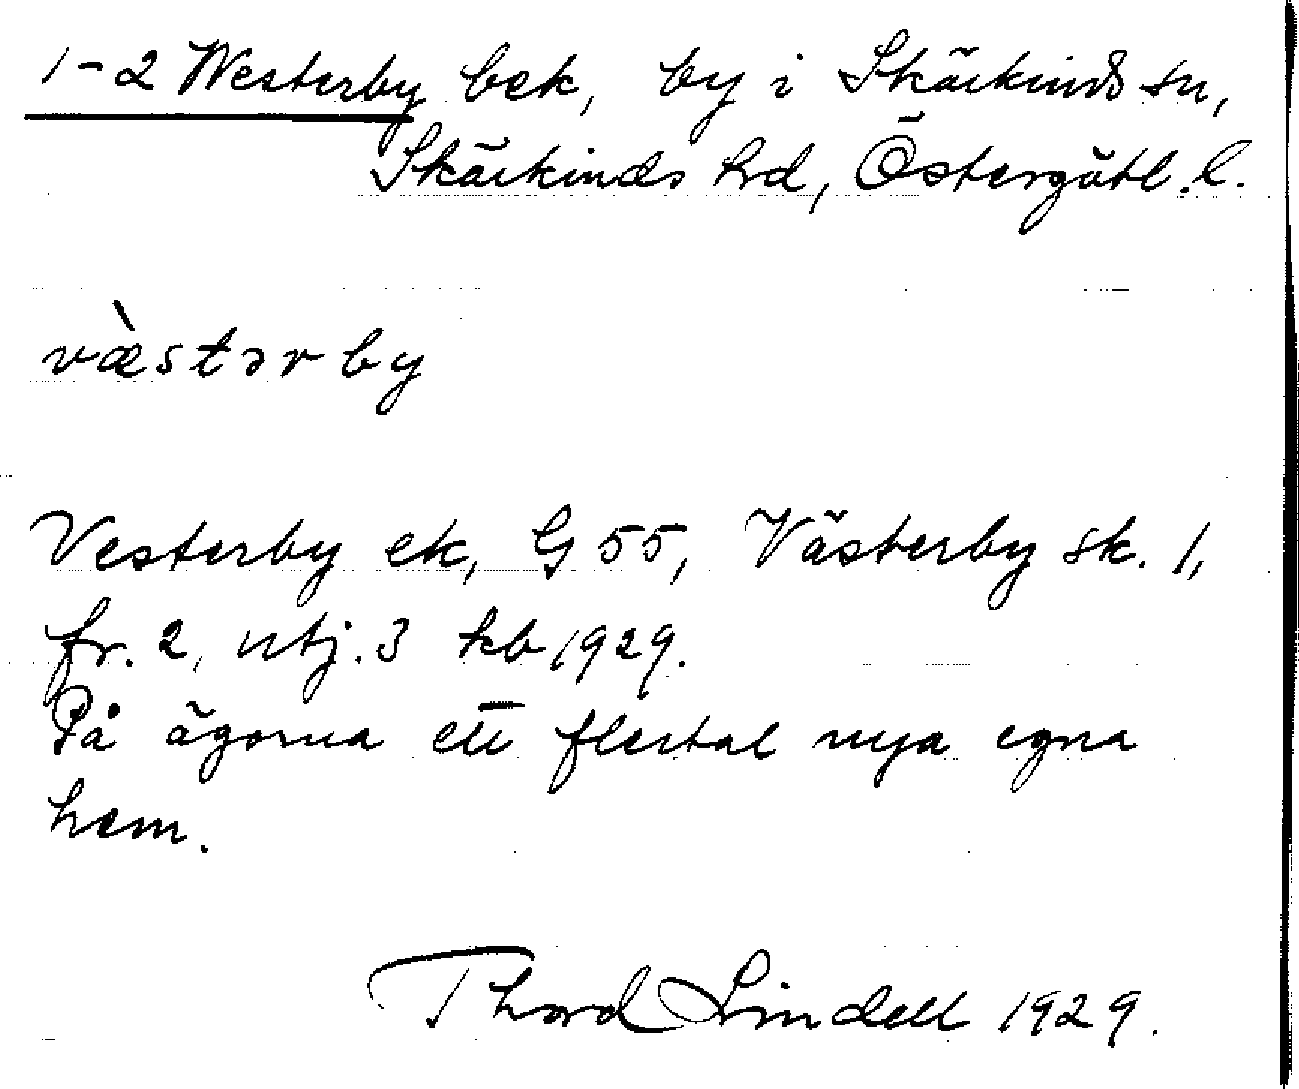 1-2 Westerby bek, by i Skärkinds sn,
Skärkinds hd, Östergötl. l.
væ̀stərby
Vesterby ek, G 55, Västerby sk. 1,
fr. 2, utj. 3 kb 1929.
På ägorna ett flertal nya egna
hem.
Thord Lindell 1929.